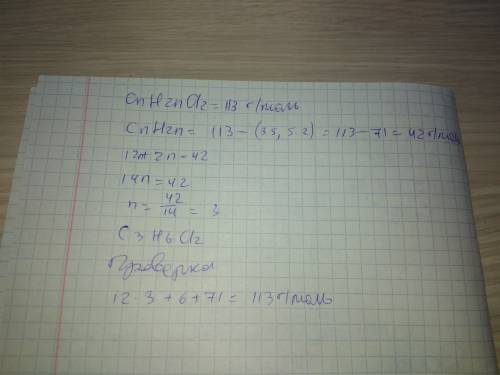 CnH2nCl2 = 113 г/моль
CnH2n = 113 – (35,5·2) = 113 – 71 = 42 г/моль
12n+2n=42
14n = 42
n = 42/14 = 3
C3H6Cl2
Проверка
12·3 + 6 + 71 = 113 г/моль